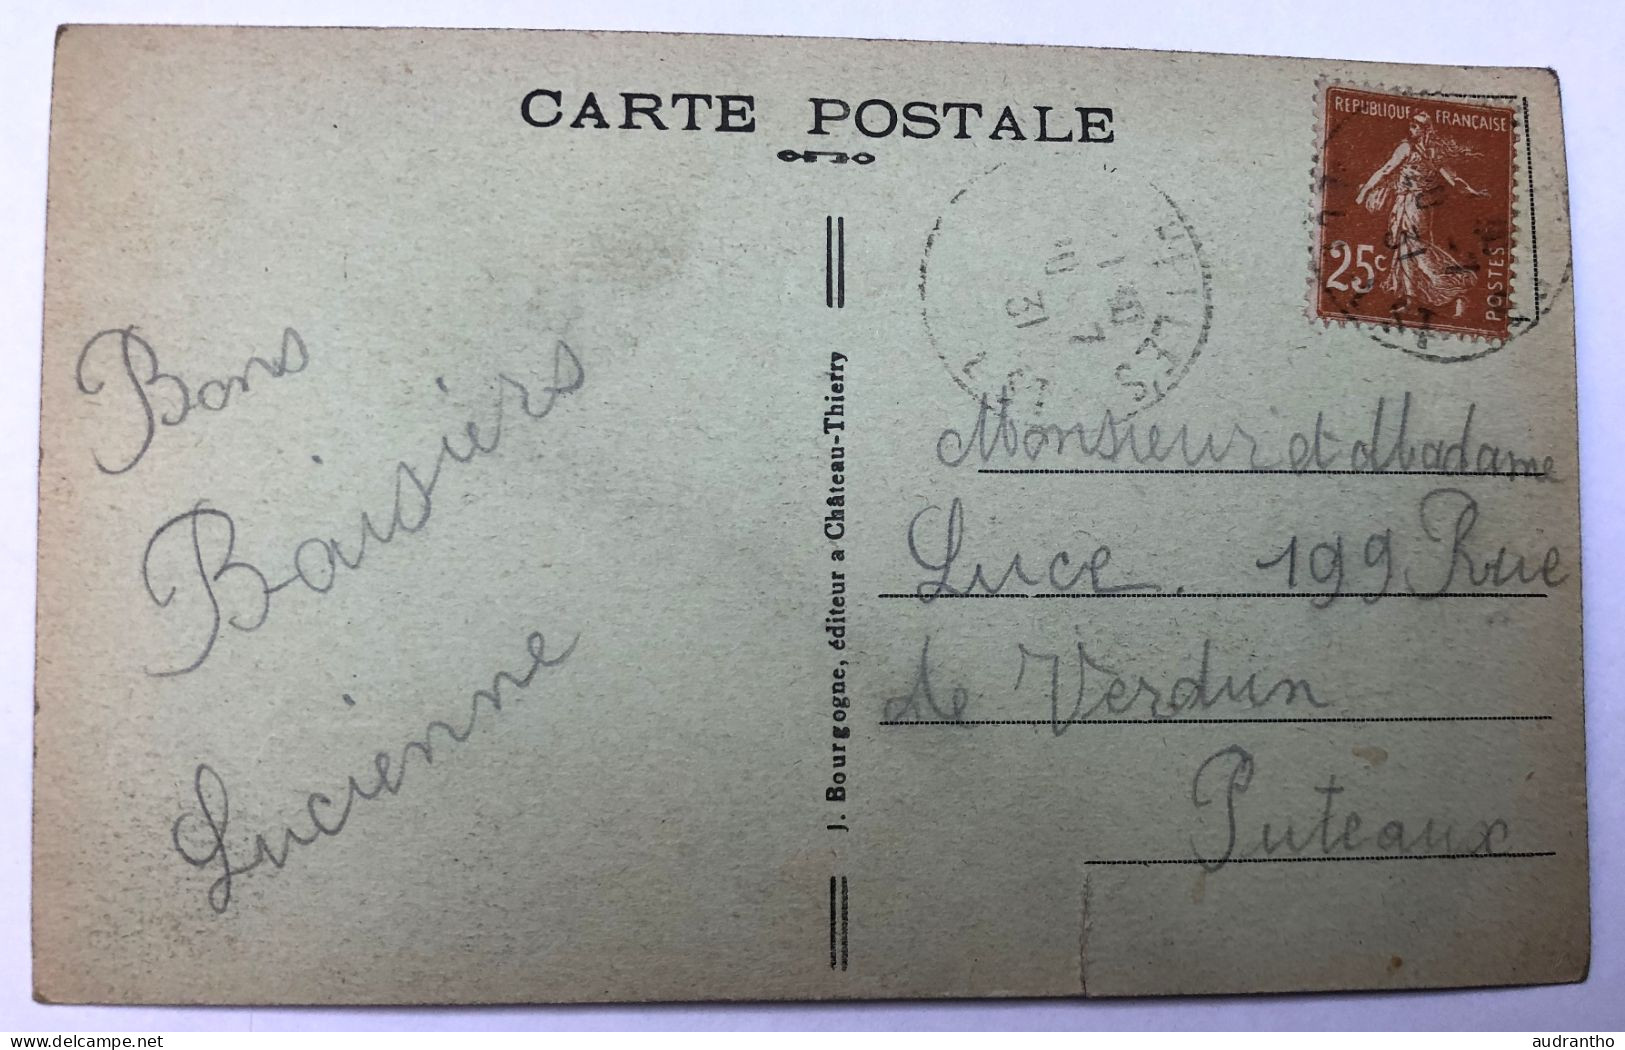 CARTE POSTALE
REPUBLIQUE FRANÇAISE
25c
POSTES
Bons
Baisiers
Lucienne
J. Bourgogne, éditeur a Château-Thierry
Monsieur et Madame
Luce. 199 Rue
de Verdun
Puteaux
delcampe.net
audrantho